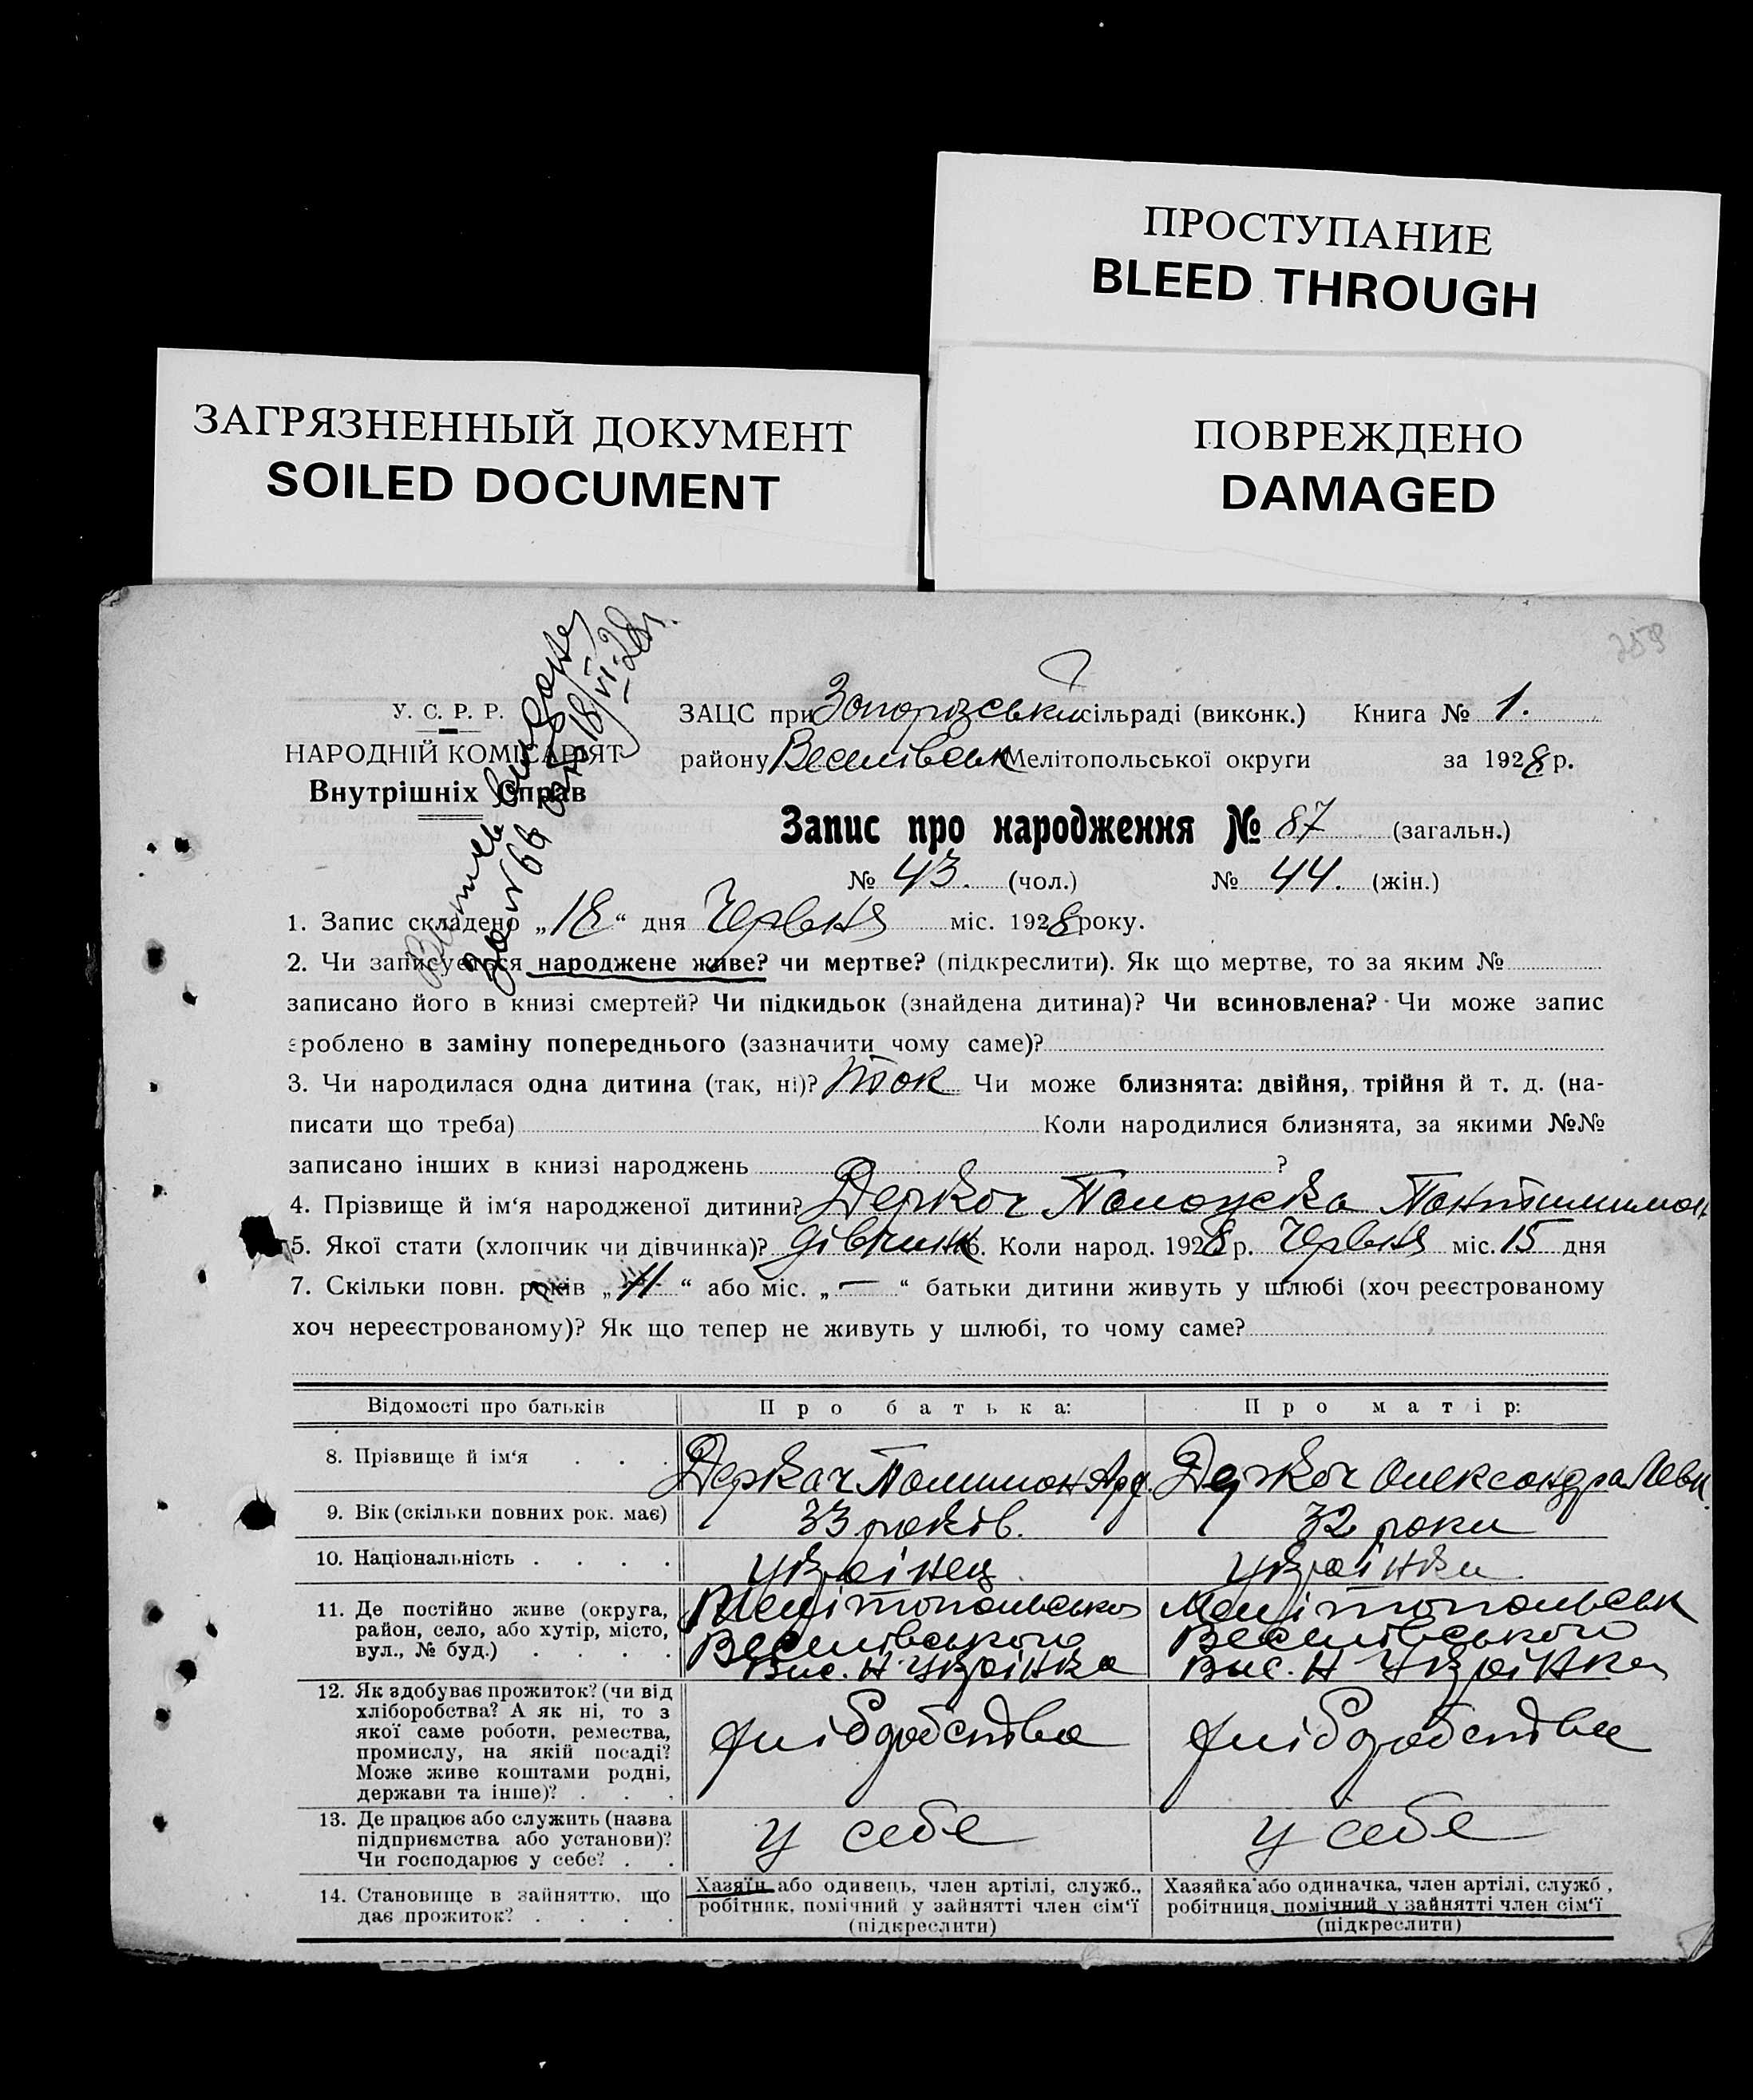 ПРОСТУПАНИЕ
BLEED THROUGH
ЗАГРЯЗНЕННЫЙ ДОКУМЕНТ
SOILED DOCUMENT
ПОВРЕЖДЕНО
DAMAGED
259
У. С. Р. Р.
НАРОДНІЙ КОМІСАРІЯТ
Внутрішніх Справ
18/VI-28 р.
ЗАЦС при Запорізській сільраді (виконк.) Книга № 1.
району Веселівськ Мелітопольської округи за 1928 р.
Запис про народження № 87 (загальн.)
№ 43. (чол.) № 44. (жін.)
1. Запис складено „18“ дня Червня міс. 1928 року.
2. Чи записується народжене живе? чи мертве? (підкреслити). Як що мертве, то за яким №
записано його в книзі смертей? Чи підкидьок (знайдена дитина)? Чи всиновлена? Чи може запис
зроблено в заміну попереднього (зазначити чому саме)?
3. Чи народилася одна дитина (так, ні)? так Чи може близнята: двійня, трійня й т. д. (на-
писати що треба) Коли народилися близнята, за якими №№
записано інших в книзі народжень ?
4. Прізвище й ім‘я народженої дитини? Деркач Палажка
5. Якої стати (хлопчик чи дівчинка)? дівчинка 6. Коли народ. 1928 р. Червня міс. 15 дня
7. Скільки повн. років „11“ або міс. „—“ батьки дитини живуть у шлюбі (хоч реєстрованому
хоч нереєстрованому)? Як що тепер не живуть у шлюбі, то чому саме?
Відомості про батьків Про батька: Про матір:
8. Прізвище й ім‘я . . . Деркач Деркач Олександра Левк.
9. Вік (скільки повних рок. має) 33 років. 32 роки
10. Національність . . . . українец українка
11. Де постійно живе (округа, Мелітопольсько Мелітопольськ
район, село, або хутір, місто, Веселівського Веселівського
вул., № буд.) . . . . Вис. Н Українка Вис. Н Українка
12. Як здобуває прожиток? (чи від
хліборобства? А як ні, то з
якої саме роботи, ремества, хліборобство хліборобство
промислу, на якій посаді?
Може живе коштами родні,
держави та інше)? . . .
13. Де працює або служить (назва
підприємства або установи)? у себе у себе
Чи господарює у себе? . .
14. Становище в зайняттю, що Хазяїн або одинець, член артілі, служб., Хазяйка або одиначка, член артілі, служб.,
дає прожиток? . . . . робітник, помічний у зайнятті член сім‘ї робітниця, помічний у зайнятті член сім‘ї
(підкреслити) (підкреслити)